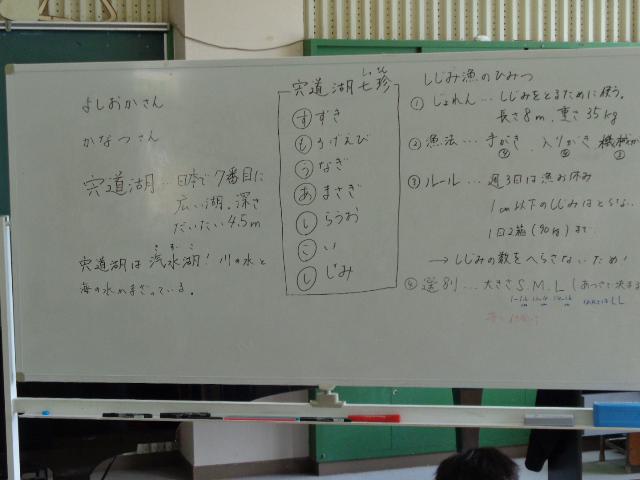 よしおかさん
かなつさん
宍道湖…日本で7番目に
広い湖。深さ
だいたい4.5m
きすいこ
宍道湖は汽水湖！川の水と
海の水がまざっている。
しっちん
宍道湖七珍
すずき
もろげえび
うなぎ
あまさぎ
しらうお
こい
しじみ
しじみ漁のひみつ
① じょれん…しじみをとるために使う。
長さ8m、重さ35kg
② 漁法…手がき、入りがき、機械がき
③ ルール…週3日は漁お休み
1cm以下のしじみはとらない
1日2箱(90kg)まで
→しじみの数をへらさないため！
④ 選別…大きさS.M.L(あつさで決まる
LL